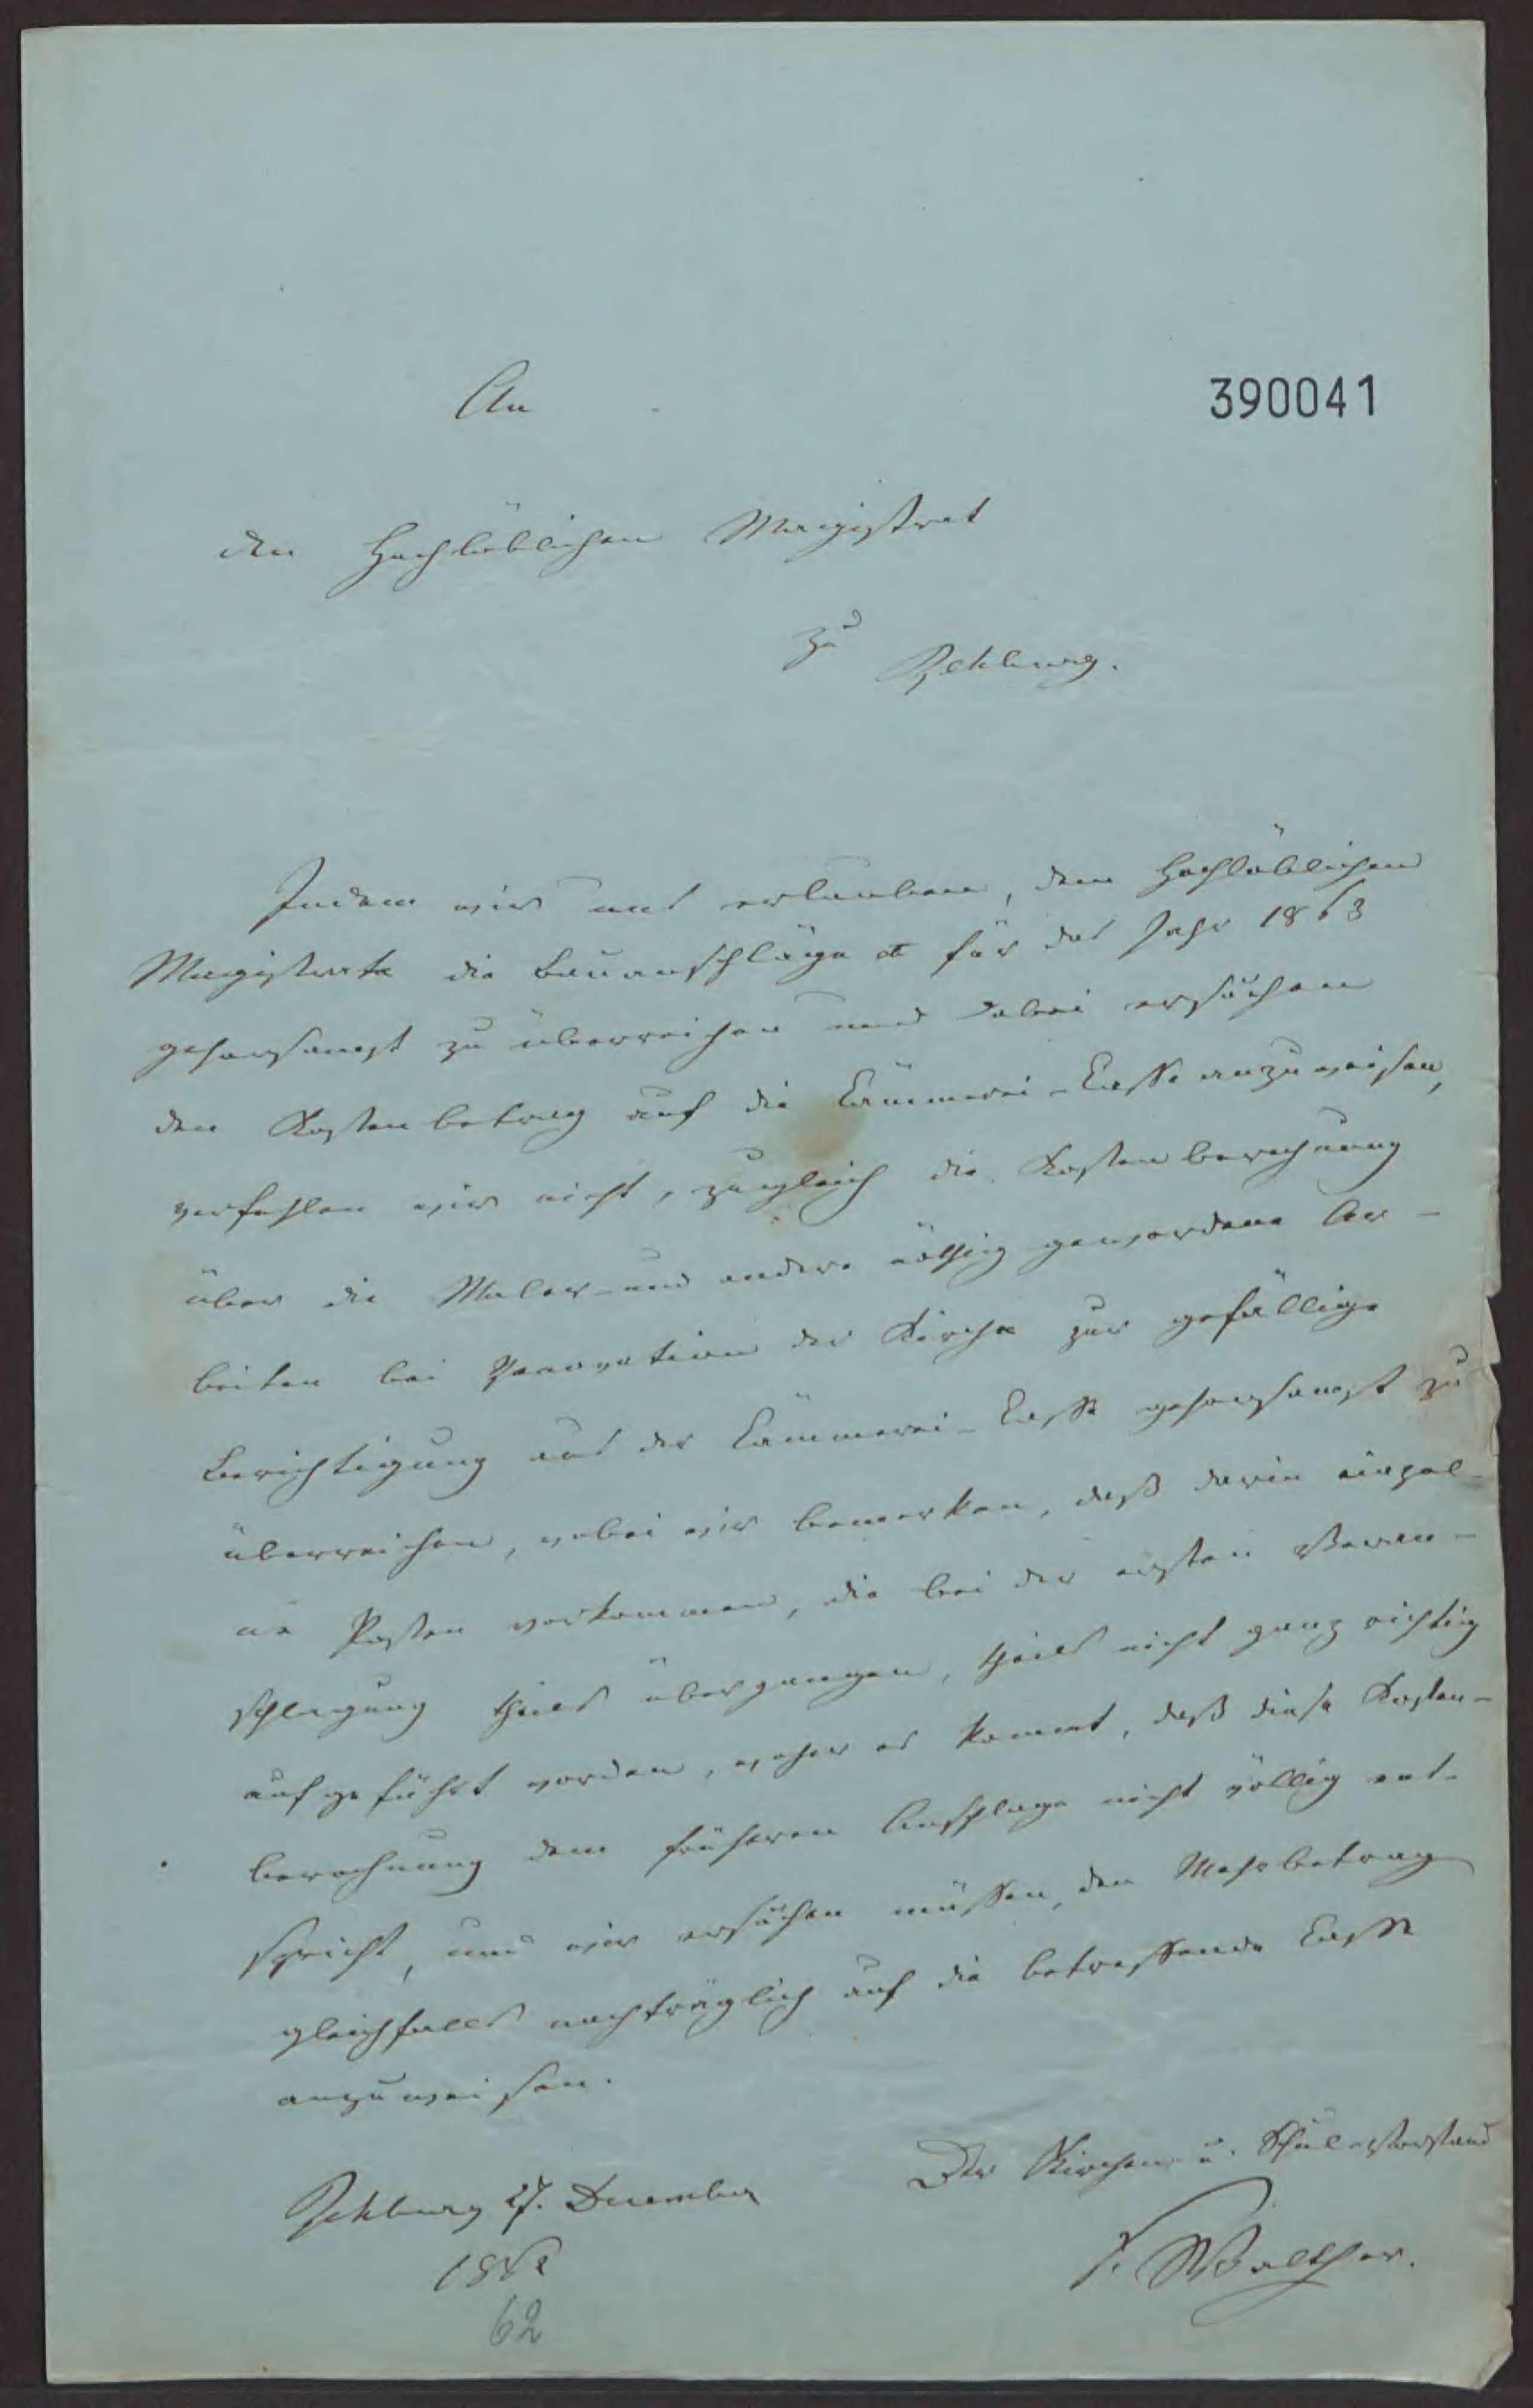 An
390041
den Hochlöblichen Magistrat
zu Rehburg.
Indem wir uns erlauben, dem Hochlöblichen
Magistrate die Bauanschläge für das Jahr 1863
gehorsamst zu überreichen und dabei ersuchen
den Kostenbetrag auf die Cämmerei-Casse anzuweisen,
verfehlen wir nicht, zugleich die Kostenberechnung
über die Maler- und andere nöthig gewordene Ar-
beiten bei Renovation der Kirche zur gefällige
Berichtigung aus der Cämmerei-Casse gehorsamst zu
überreichen, wobei wir bemerken, daß darin einzel-
ne Posten vorkommen, die bei der ersten Veran-
schlagung theils übergangen, theils nicht ganz richtig
aufgeführt worden, woher es kommt, daß diese Kosten-
berechnung dem früheren Anschlage nicht völlig ent-
spricht, und wir ersuchen müssen, den Mehrbetrag
gleichfalls nachträglich auf die betreffende Casse
anzuweisen.
Rehburg 27. December
1862
Der Kirchen- u. Schulvorstand
F. Walther.
62